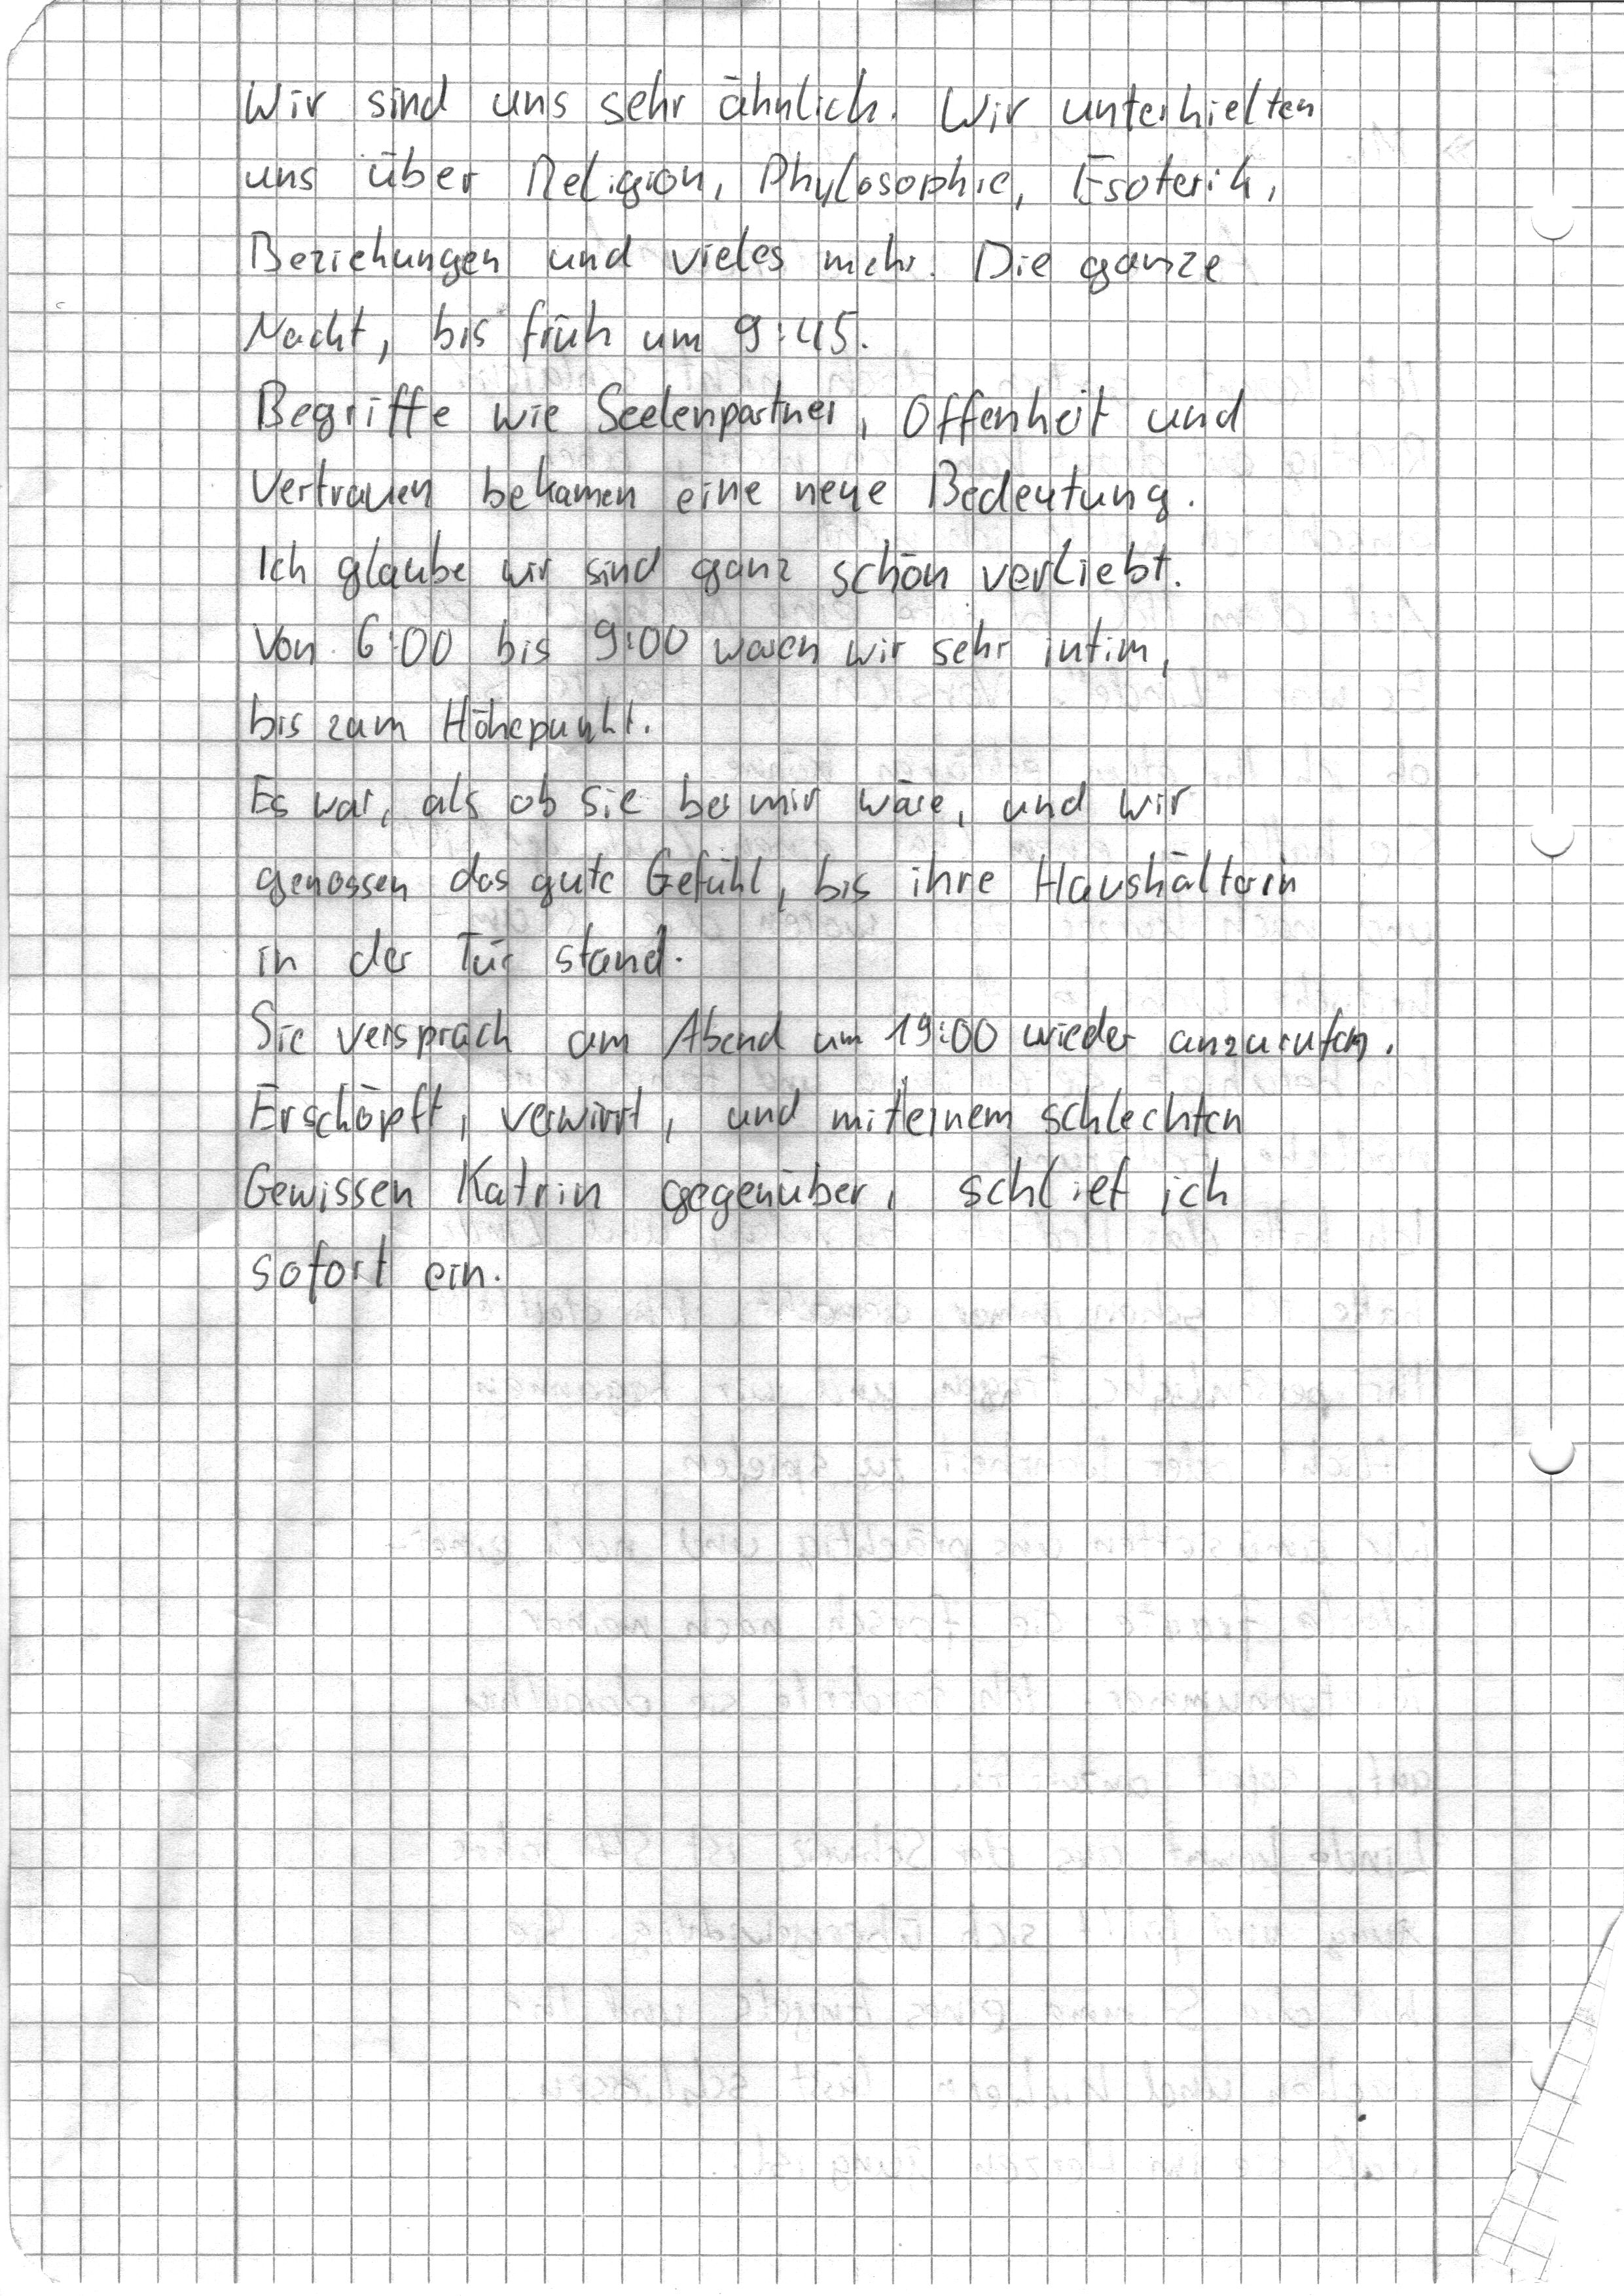 Wir sind uns sehr ähnlich. Wir unterhielten
uns über Religion, Phylosophie, Esoterik,
Beziehungen und vieles mehr. Die ganze
Nacht, bis früh um 9:45.
Begriffe wie Seelenpartner, Offenheit und
Vertrauen bekamen eine neue Bedeutung.
Ich glaube wir sind ganz schön verliebt.
Von 6:00 bis 9:00 waren wir sehr intim,
bis zum Höhepunkt.
Es war, als ob sie bei mir wäre, und wir
genossen das gute Gefühl, bis ihre Haushälterin
in der Tür stand.
Sie versprach am Abend um 19:00 wieder anzurufen.
Erschöpft, verwirrt, und mit einem schlechten
Gewissen Katrin gegenüber, schlief ich
sofort ein.